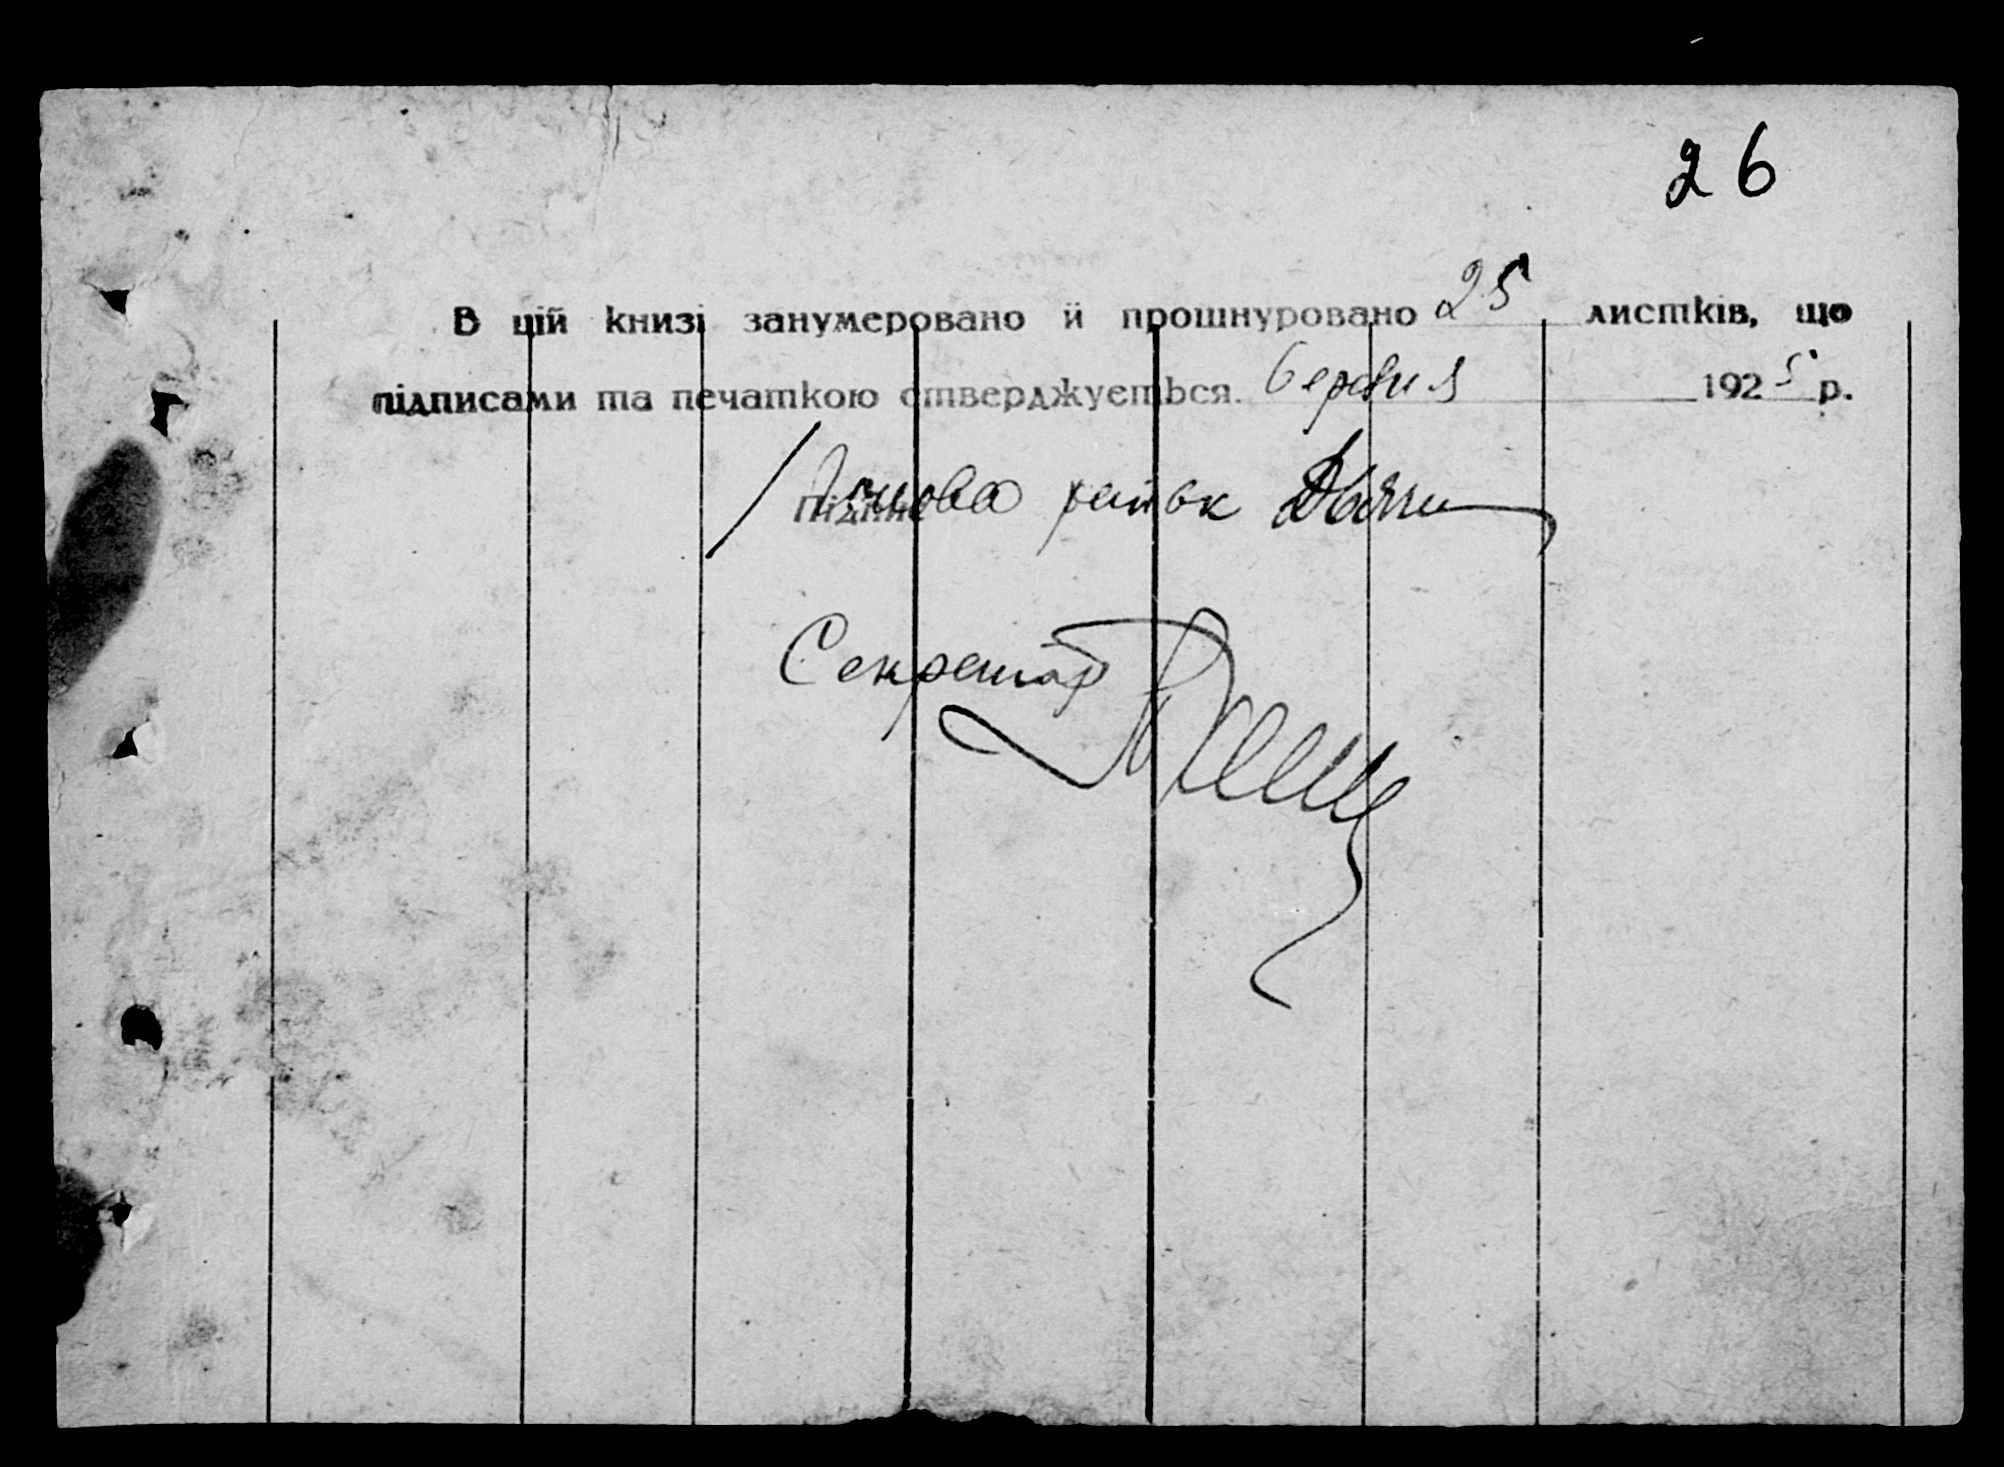 26
В цій книзі занумеровано й прошнуровано 25 листків, що
підписами та печаткою стверджується. 1925 р.
Підпис
Голова
Секретар